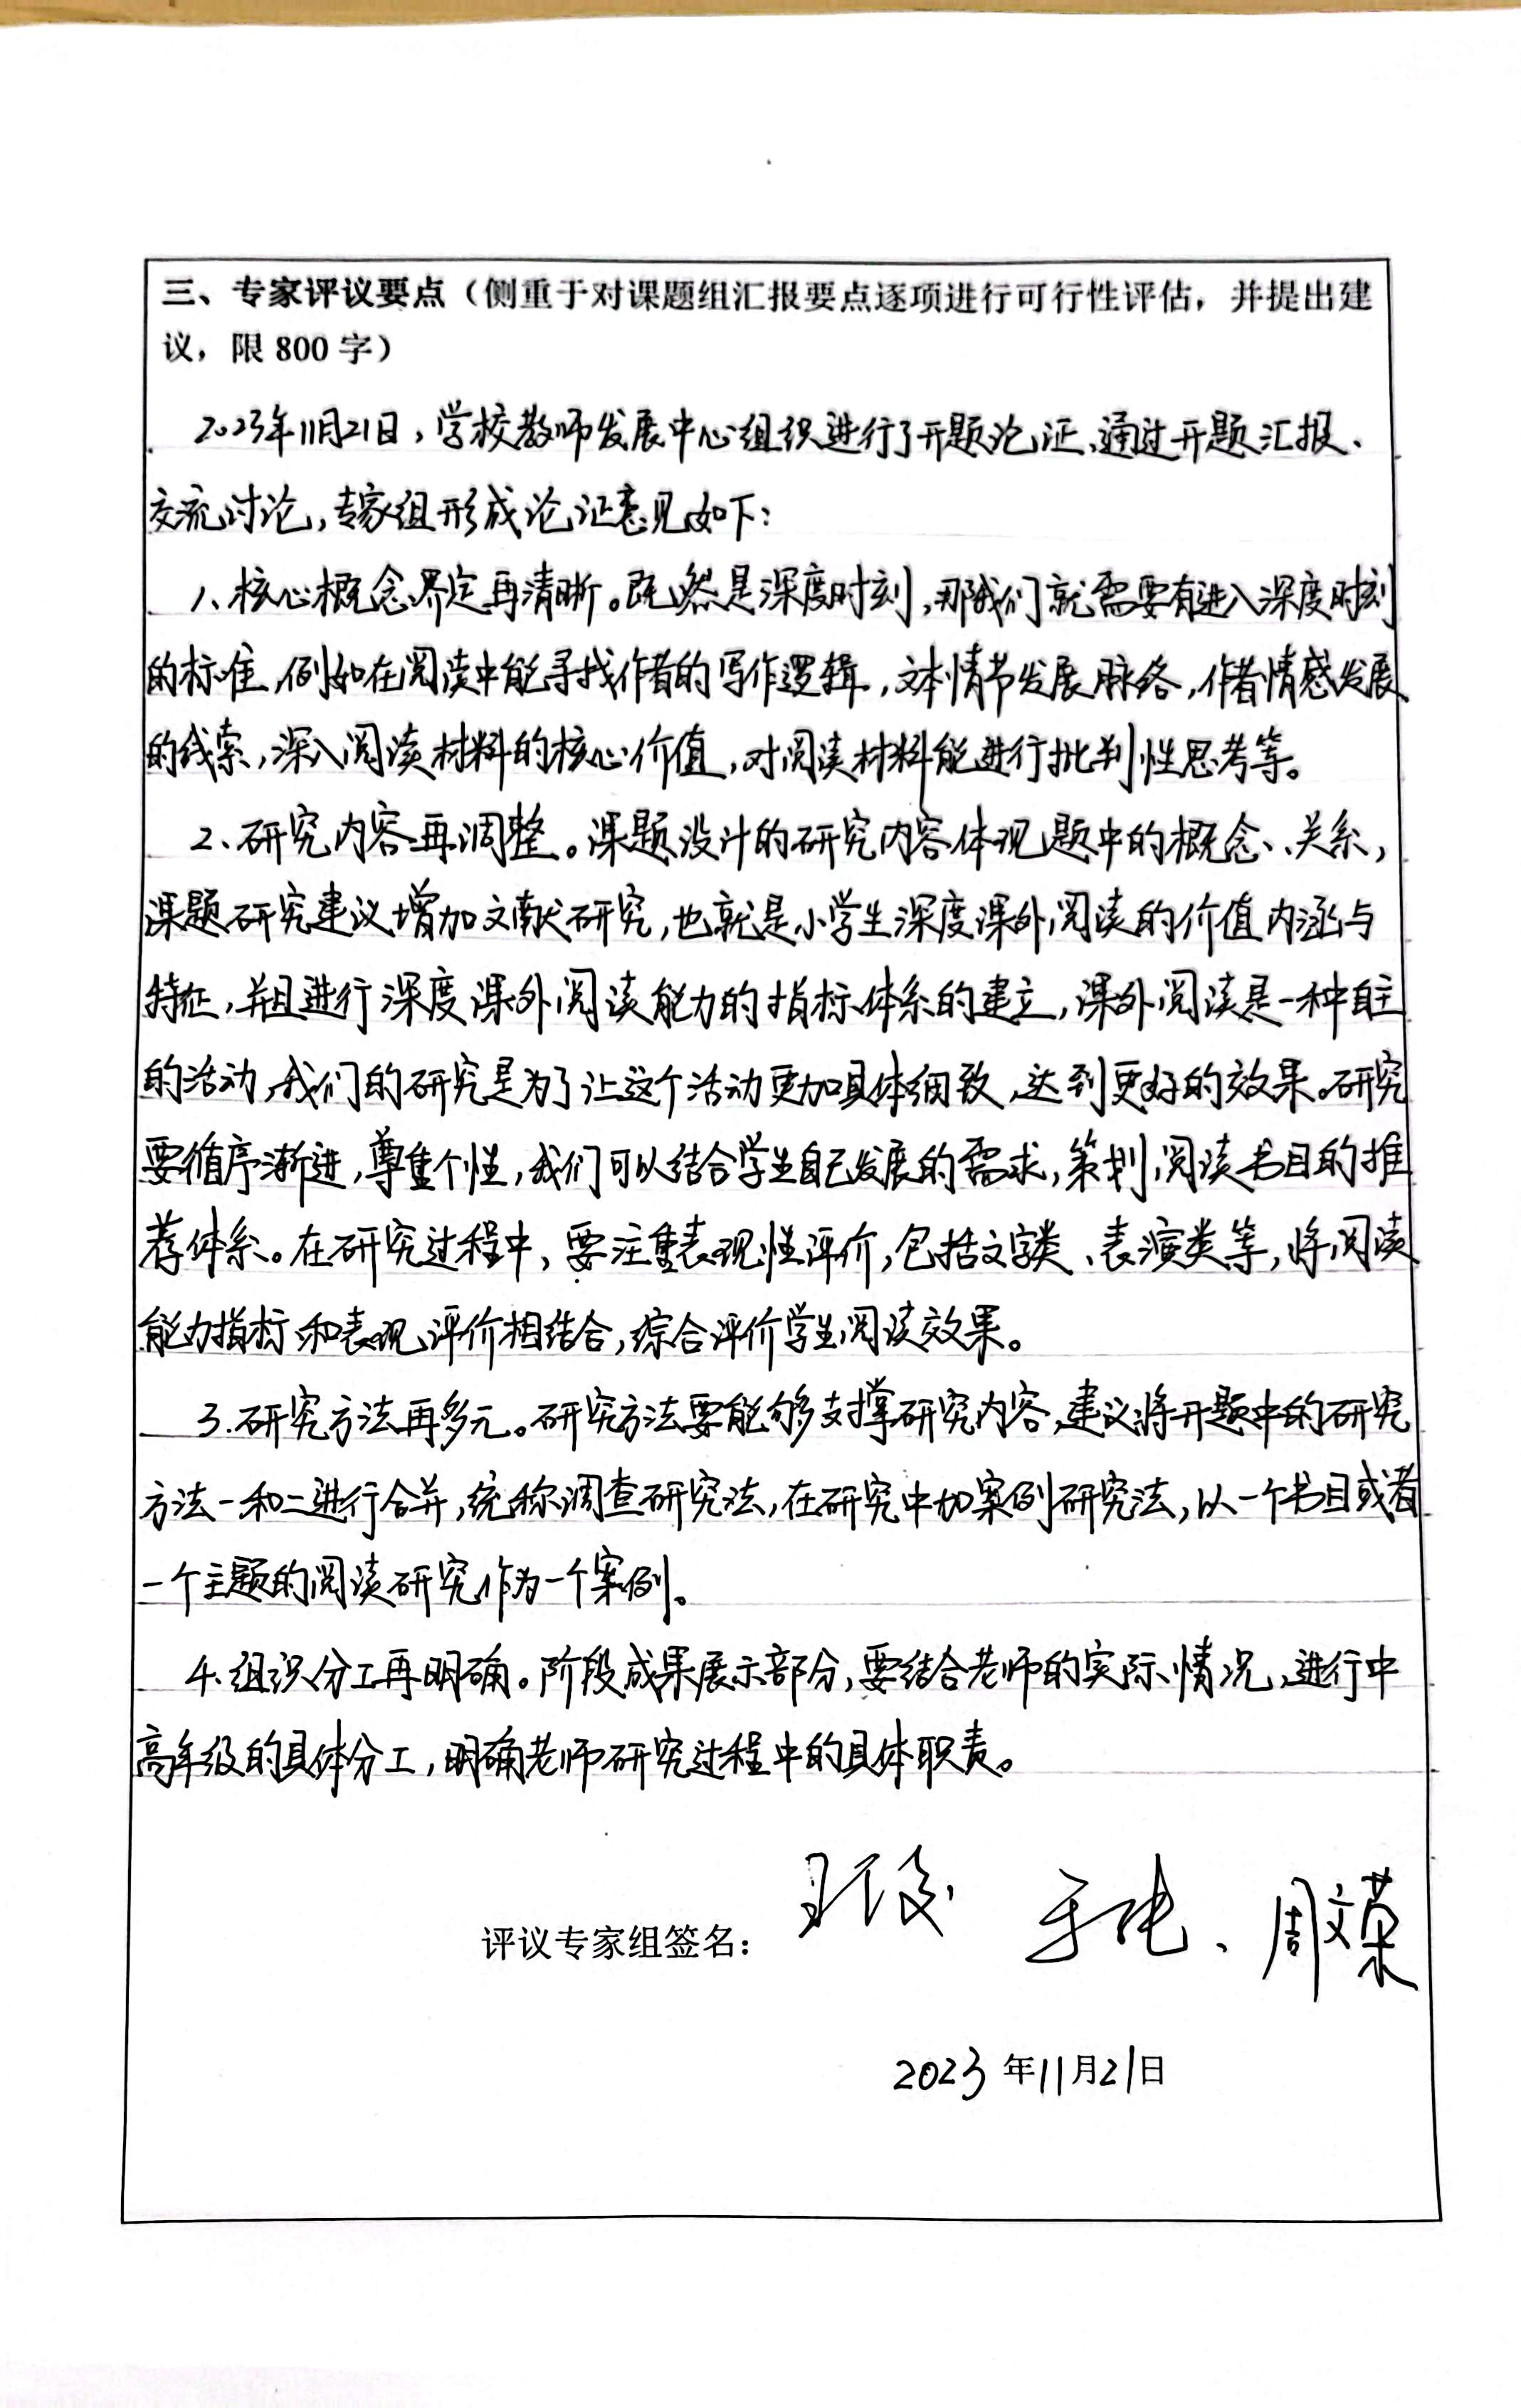 三、专家评议要点（侧重于对课题组汇报要点逐项进行可行性评估，并提出建
议，限 800 字）
2023年11月21日，学校教师发展中心组织进行了开题论证，通过开题汇报、
交流讨论，专家组形成论证意见如下：
1、核心概念界定再清晰。既然是深度时刻，那我们就需要有进入深度时刻
的标准，例如在阅读中能寻找作者的写作逻辑，文本情节发展脉络，作者情感发展
的线索，深入阅读材料的核心价值，对阅读材料能进行批判性思考等。
2、研究内容再调整。课题设计的研究内容体现题中的概念、关系，
课题研究建议增加文献研究，也就是小学生深度课外阅读的价值内涵与
特征，并且进行深度课外阅读能力的指标体系的建立，课外阅读是一种自主
的活动，我们的研究是为了让这个活动更加具体细致，达到更好的效果。研究
要循序渐进，尊重个性，我们可以结合学生自己发展的需求，策划阅读书目的推
荐体系。在研究过程中，要注重表现性评价，包括文字类、表演类等，将阅读
能力指标和表现评价相结合，综合评价学生阅读效果。
3.研究方法再多元。研究方法要能够支撑研究内容，建议将开题中的研究
方法一和二进行合并，统称调查研究法，在研究中加案例研究法，以一个书目或者
一个主题的阅读研究作为一个案例。
4.组织分工再明确。阶段成果展示部分，要结合老师的实际情况，进行中
高年级的具体分工，明确老师研究过程中的具体职责。
评议专家组签名： 周文荣
2023 年11月21日